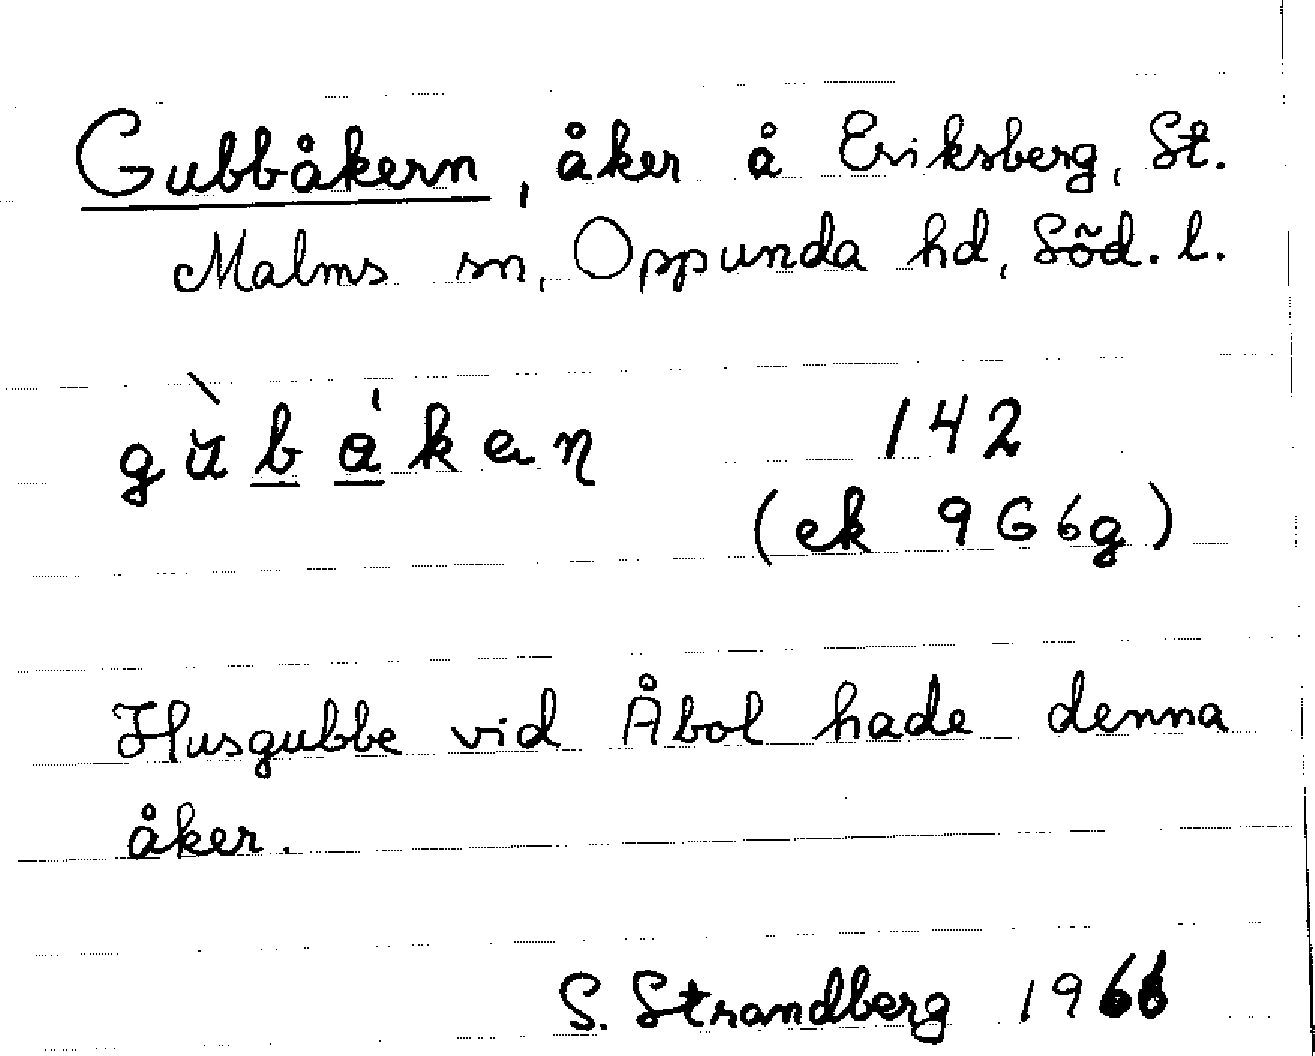 Gubbåkern, åker å Eriksberg, St.
Malms sn, Oppunda hd, Söd. l.
142
(ek 9G6g)
Husgubbe vid Åbol hade denna
åker.
S. Strandberg 1966